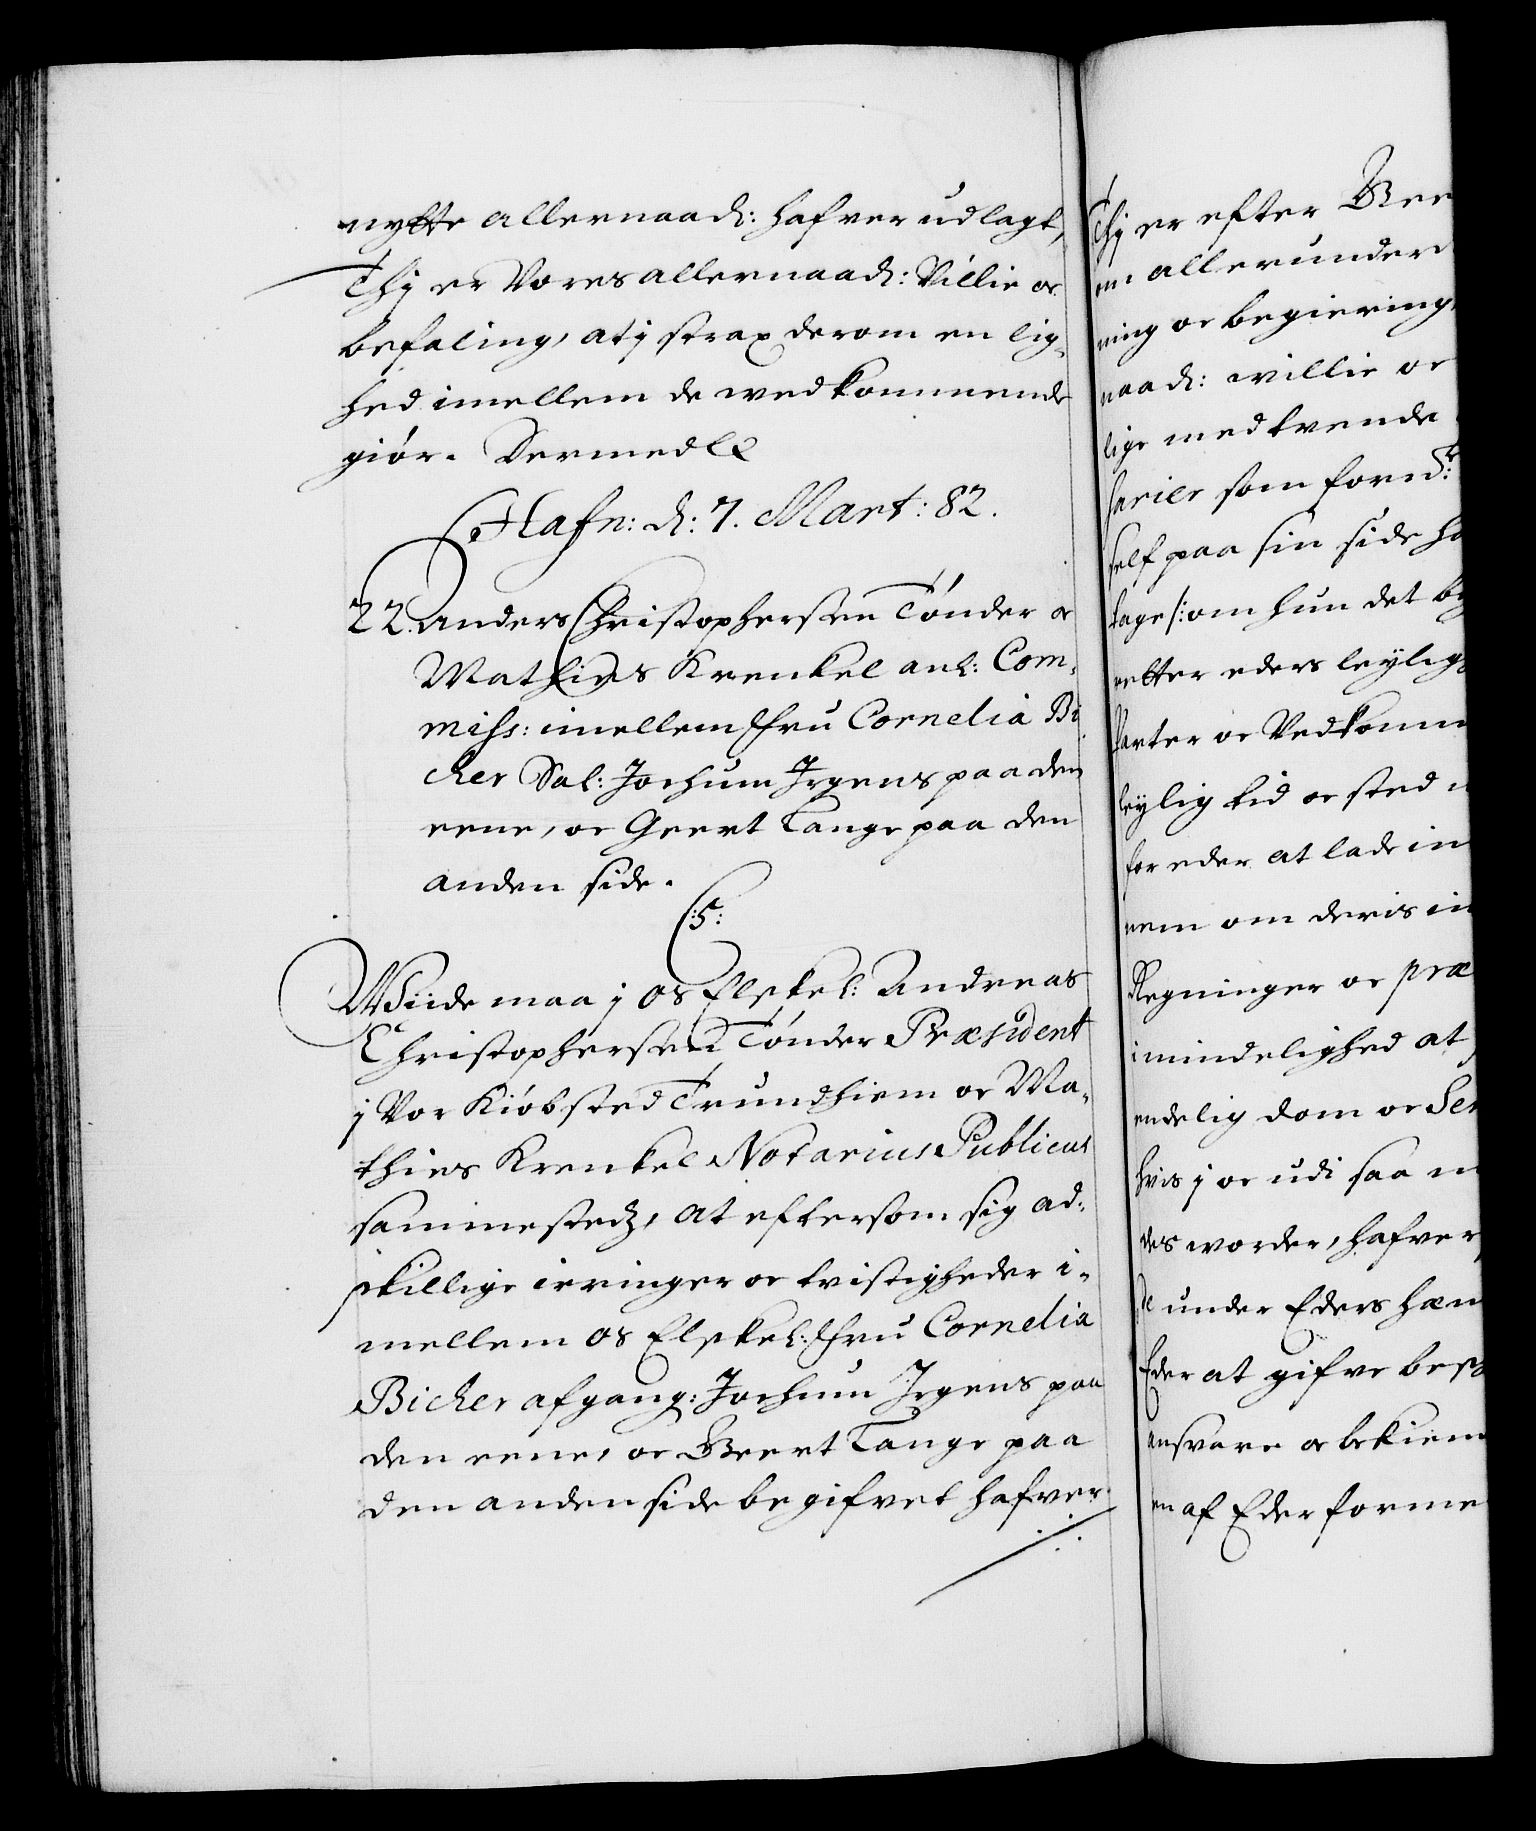 nytte allernaad: hafver udlagt,
Thj er Vores allernaad: Villie oc
befaling, at j strax derom en lig,
hed imellem de wedkommende
giör. Dermed etc
Hafn: d: 7. Mart: 82.
22. Anders Christophersen Tönder oc
Mathias Krenkel anl: Com,
miss: imellem Fru Cornelia Bi
cher Sal: Jochum Jrgens paa den
eene, oc Geert Lange paa den
anden side.
C:5:
Wiide maa j os Elskel: Andreas
Christophersen Tönder Præsident
j Vor Kiöbsted Trundhiem oc Ma,
thies Krenkel Notarius Publicus
sammesteds, at eftersom sig ad,
skillige irringer oc tvistigheder i,
mellem os Elskel: Fru Cornelia
Bicher afgang: Jochum Jrgens paa
den eene, oc Geert Lange paa
den anden side begifvet hafver
Thj er efter Bee
en allerunder
ning oc begiering,
naad: willie oc
lige med tvende
sarier som fornd:e
self paa sin side ha
tage /: om hun det be
efter eders leylig,
Parter oc Vedkomm
leylig tid oc sted
for eder at lade in
nem om deris in
Regninger oc præ
i mindelighed at
endelig dom oc Sen
hvis j oc udi saa m
des worder, hafver
se under Eders hæn
Eder at gifve besk
ansvare oc bekien
en af Eder forme